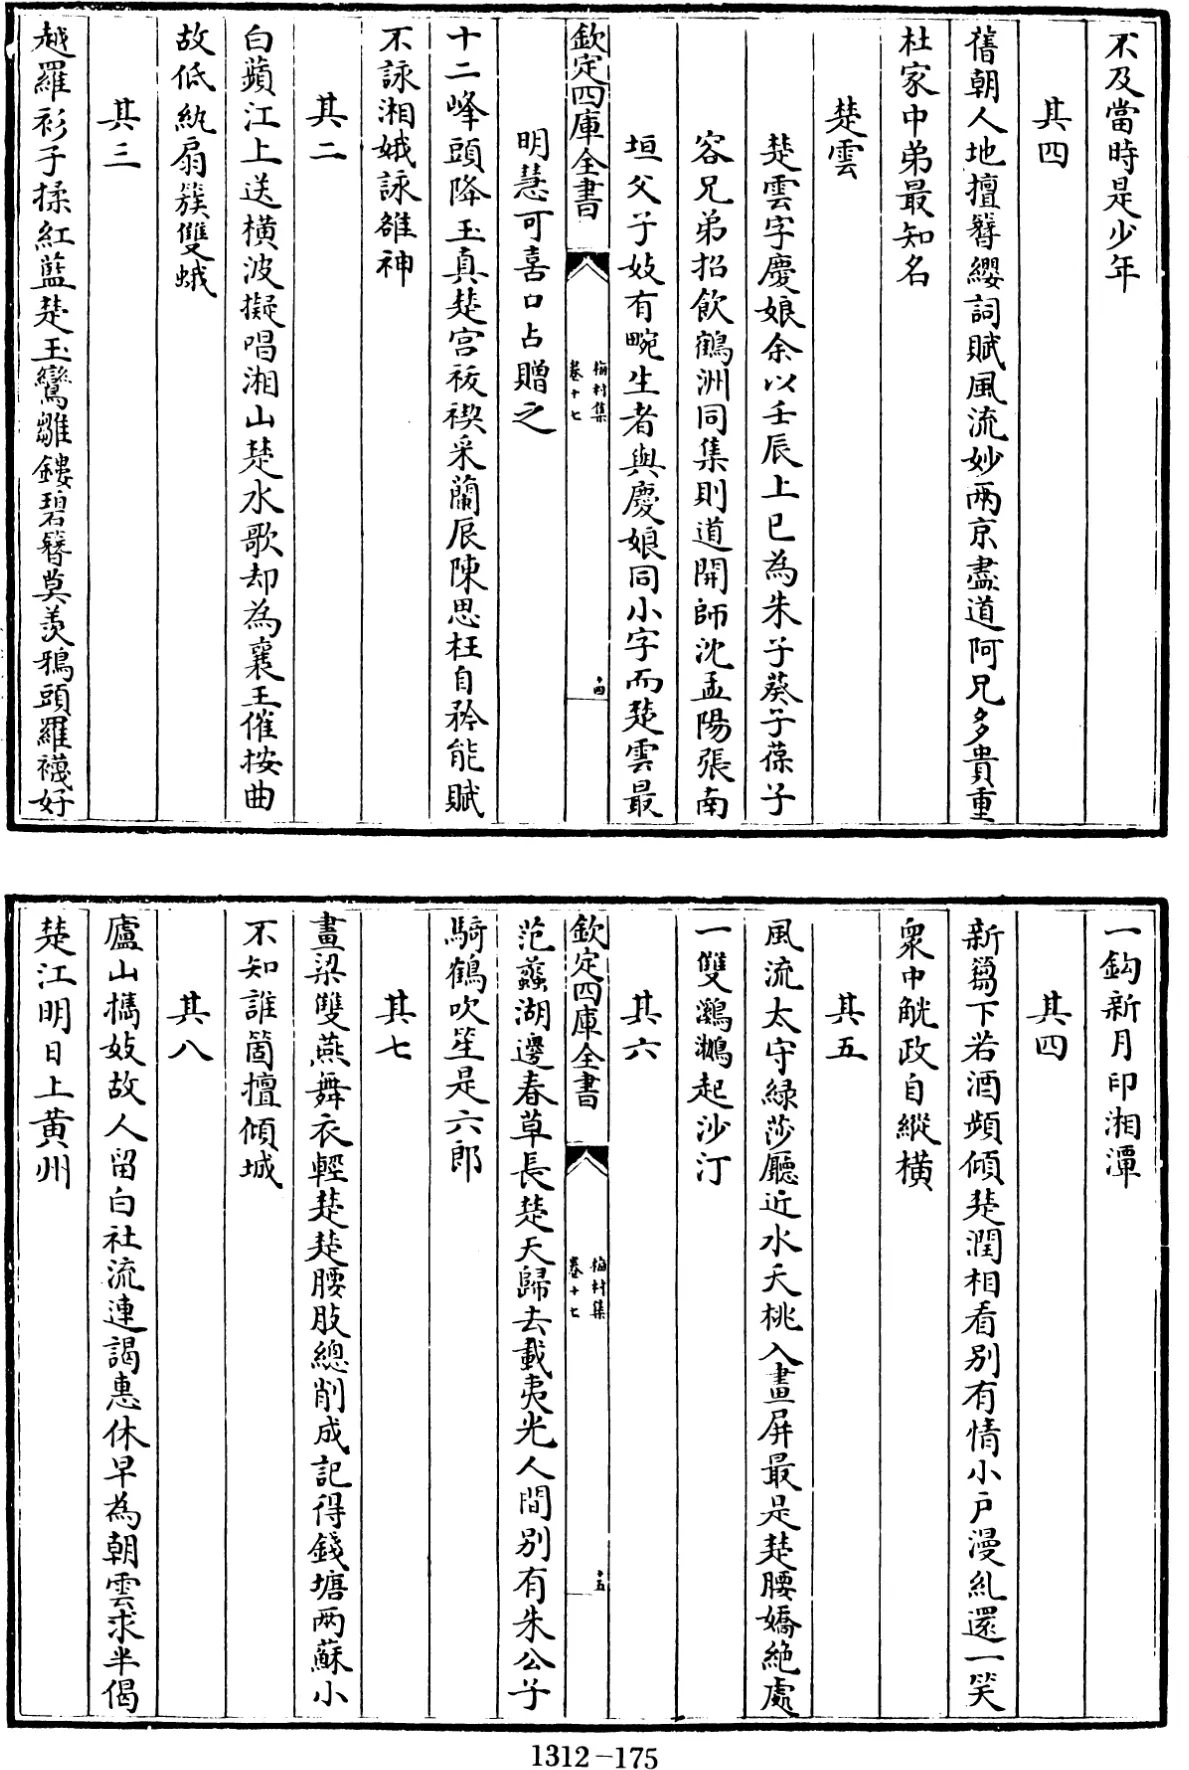 不及當時是少年
其四
舊朝人地擅簪纓詞賦風流妙兩京盡道阿兄多貴重
杜家中弟最知名
楚雲
楚雲字慶娘余以壬辰上巳為朱子葵子葆子
容兄弟招飲鶴洲同集則道開師沈孟陽張南
垣父子妓有畹生者與慶娘同小字而楚雲最
欽定四庫全書
梅村集
卷十七
十四
明慧可喜口占贈之
十二峰頭降玉真楚宮祓禊采蘭辰陳思枉自矜能賦
不詠湘娥詠雒神
其二
白蘋江上送橫波擬唱湘山楚水歌却為襄王催按曲
故低紈扇簇雙蛾
其三
越羅衫子揉紅藍楚玉鸞雛鏤碧簪莫羨鴉頭羅襪好
一鈎新月印湘潭
其四
新蒭下若酒頻傾楚潤相看別有情小戶漫糺還一笑
衆中觥政自縱橫
其五
風流太守綠莎廳近水夭桃入畫屏最是楚腰嬌絶處
一雙鸂鶒起沙汀
其六
欽定四庫全書
梅村集
卷十七
十五
范蠡湖邊春草長楚天歸去載夷光人間別有朱公子
騎鶴吹笙是六郎
其七
畫梁雙燕舞衣輕楚楚腰肢總削成記得錢塘兩蘇小
不知誰箇擅傾城
其八
廬山攜妓故人留白社流連謁惠休早為朝雲求半偈
楚江明日上黄州
1312-175